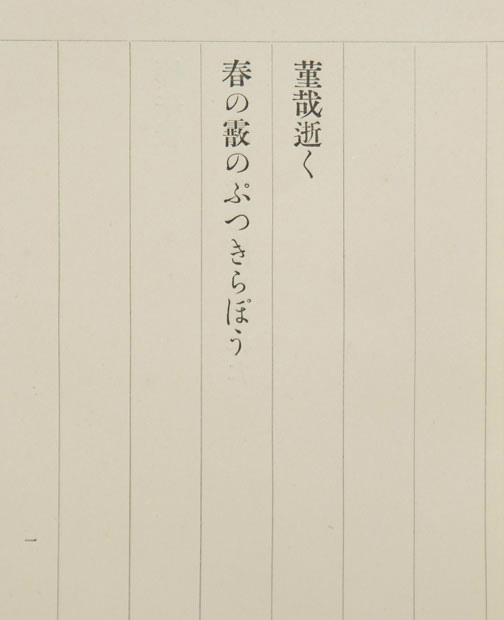 菫哉逝く
春の霰のぶつきらぼう
一